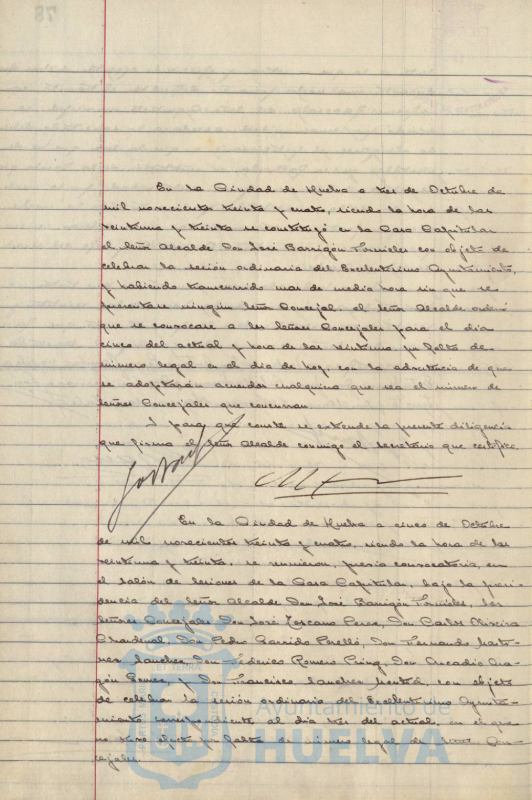 78
En la Ciudad de Huelva a tres de Octubre de
mil novecientos treinta y cuatro, siendo la hora de las
veintiuna y treinta se constituyó en la Casa Capitular
el Señor Alcalde Don José Barrigón Fornieles con objeto de
celebrar la sesión ordinaria del Excelentísimo Ayuntamiento,
y habiendo transcurrido mas de media hora sin que se
presentase ningún Señor Concejal, el Señor Alcalde ordenó
que se convocase a los Señores Concejales para el día
cinco del actual y hora de las veintiuna, por falta de
número legal en el día de hoy, con la advertencia de que
se adoptarán acuerdos cualquiera que sea el número de
Señores Concejales que concurran.
Y para que conste se extiende la presente diligencia
que firma el Señor Alcalde conmigo el Secretario que certifico.
En la Ciudad de Huelva a cinco de Octubre
de mil novecientos treinta y cuatro, siendo la hora de las
veintiuna y treinta, se reunieron, previa convocatoria, en
el salón de Sesiones de la Casa Capitular, bajo la presi-
dencia del Señor Alcalde Don José Barrigón Fornieles, los
Señores Concejales Don José Toscano Perez, Don Carlos Oliveira
Chardenal, Don Pedro Garrido Perelló, Don Fernando
Sanchez, Don Federico Romero, Don Arcadio Ara-
gón Gomez, y Don Francisco Sanchez, con objeto
de celebrar la sesión ordinaria del Excelentísimo Ayunta-
miento correspondiente al día tres del actual, en el que
no tuvo efecto por falta de número legal de Señores Con-
cejales.
Ayuntamiento de
HUELVA